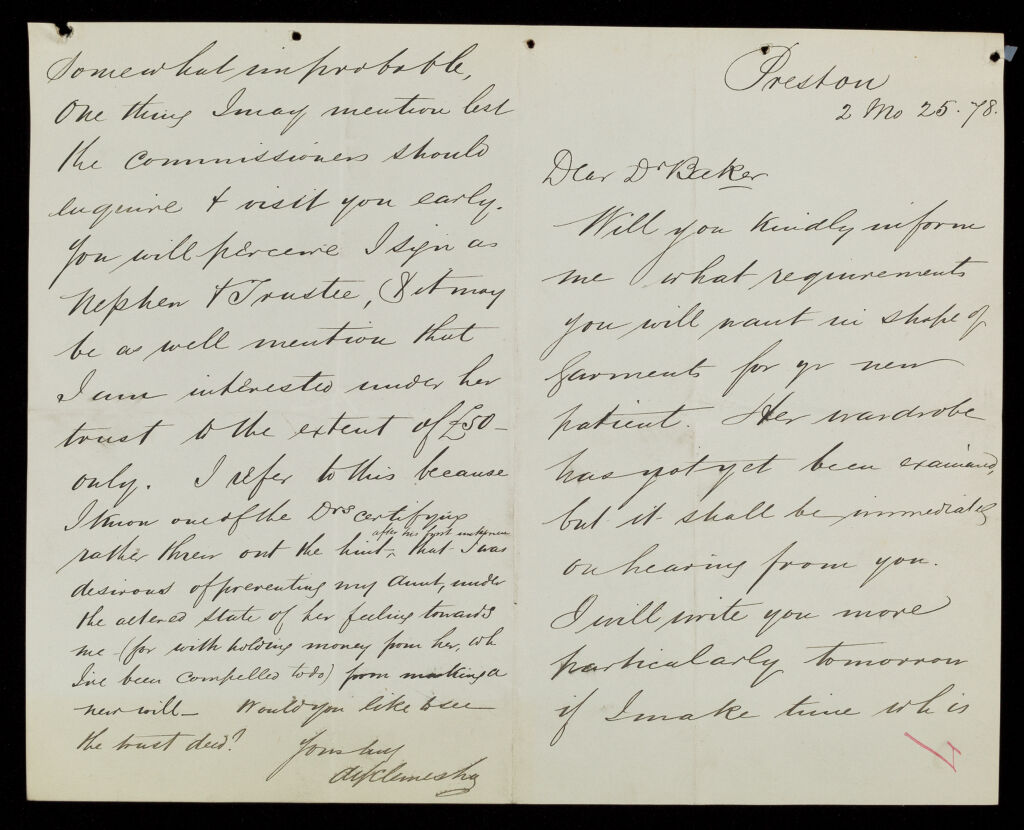 Preston
2 Mo 25. 78.
Dear Dr Baker
Will you kindly inform
me what requirements
you will want in shape of
Garments for yr new
patient. Her wardrobe
has not yet been examined,
but it shall be immediately
on hearing from you.
I will write you more
particularly tomorrow
if I make time wh is
somewhat improbable,
One thing I may mention lest
the Commissioners should
enquire & visit you early.
You will perceive I sign as
Nephew & Trustee, & it may
be as well mention that
I am interested under her
trust to the extent of £50–
only. I refer to this because
I know one of the Drs certifying
after his first
rather threw out the hint, that I was
desirous of preventing my Aunt, under
the altered state of her feeling towards
me (for with holding money from her, wh
I've been compelled to do) from making a
new will – Would you like to see
the trust deed?
Yours truly
W Clemesha